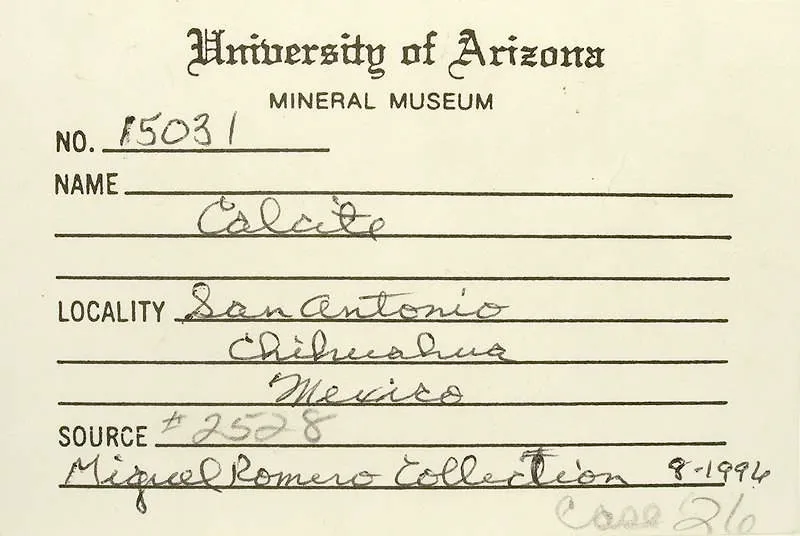 University of Arizona
MINERAL MUSEUM
NO. 15031
NAME
Calcite
LOCALITY San Antonio
Chihuahua
Mexico
SOURCE #2528
Miguel Romero Collection 8-1996
Case 26